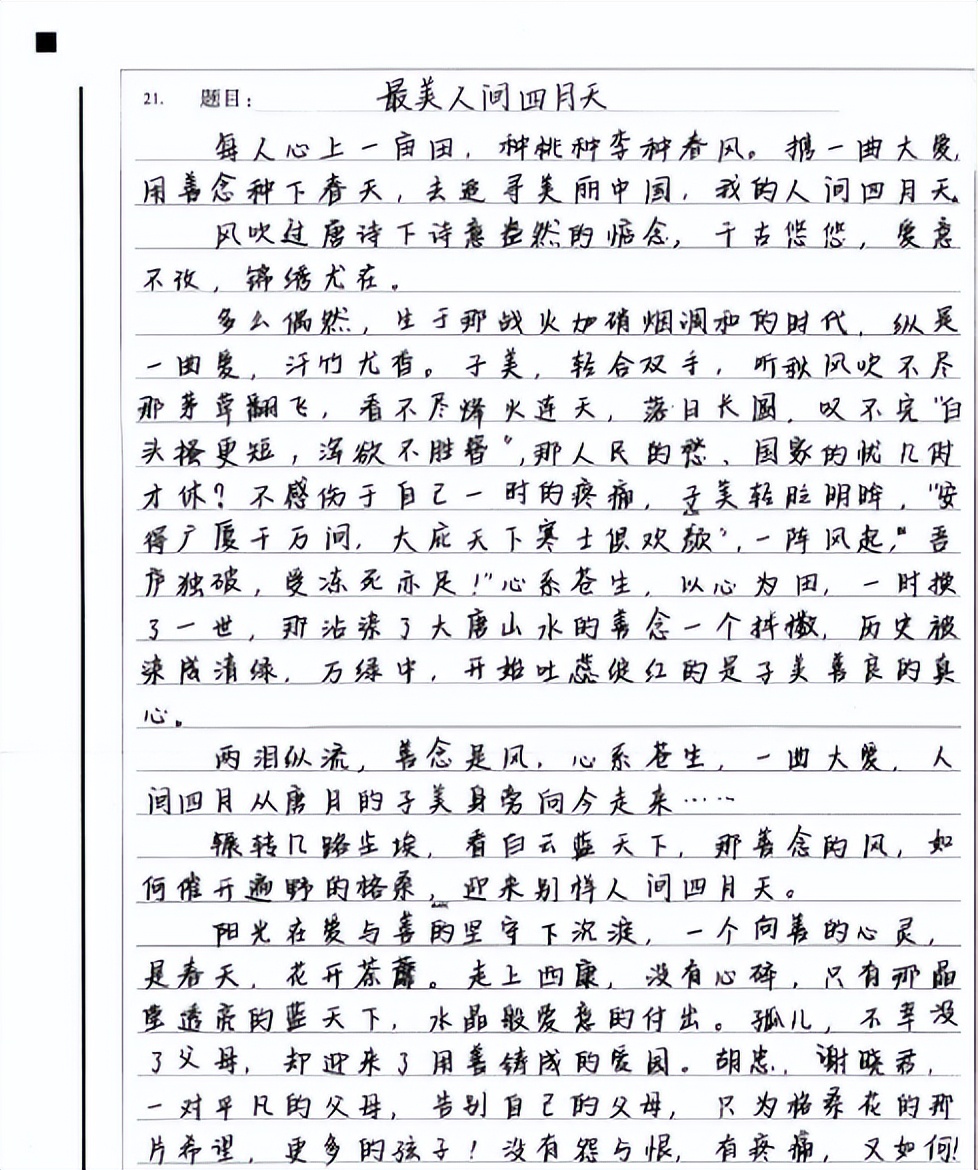 21. 题目: 最美人间四月天
每人心上一亩田，种桃种李种春风。携一曲大爱，
用善念种下春天，去追寻美丽中国，我的人间四月天。
风吹过唐诗下诗意盎然的惦念，千古悠悠，爱意
不改，锦绣尤在。
多么偶然，生于那战火如硝烟凋和的时代，纵是
一曲爱，汗竹尤香。子美，轻合双手，听秋风吹不尽
那茅草翻飞，看不尽烽火连天，落日长圆，叹不完“白
头搔更短，浑欲不胜簪”，那人民的愁、国家的忧几时
才休？不感伤于自己一时的疼痛，子美轻睑明眸，“安
得广厦千万间，大庇天下寒士俱欢颜”，一阵风起，“吾
庐独破，受冻死亦足！”心系苍生，以心为田，一时换
了一世，那沾染了大唐山水的善念一个抖擞，历史被
染成清绿，万绿中，开始吐蕊绽红的是子美善良的真
心。
两泪纵流，善念是风，心系苍生，一曲大爱，人
间四月从唐月的子美身旁向今走来……
辗转几路尘埃，看白云蓝天下，那善念的风，如
何催开遍野的格桑，迎来别样人间四月天。
阳光在爱与善的坚守下沉淀，一个向善的心灵，
是春天，花开荼蘼。走上西康，没有心碎，只有那晶
莹透亮的蓝天下，水晶般爱意的付出。孤儿，不幸没
了父母，却迎来了用善铸成的爱园。胡忠，谢晓君，
一对平凡的父母，告别自己的父母，只为格桑花的那
片希望，更多的孩子！没有怨与恨，有疼痛，又如何！